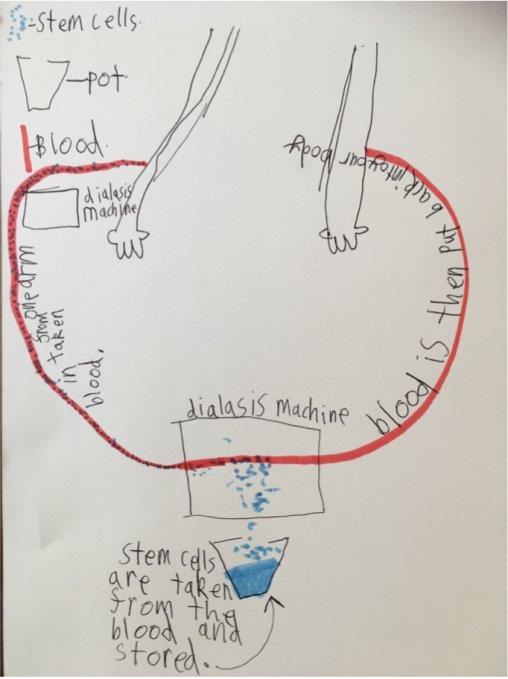 -Stem cells.
-pot.
-Blood.
dialasis
machine
blood,
in
taken
from
one arm
dialasis Machine
blood is then put back into your body
Stem cells
are taken
from the
blood and
stored.